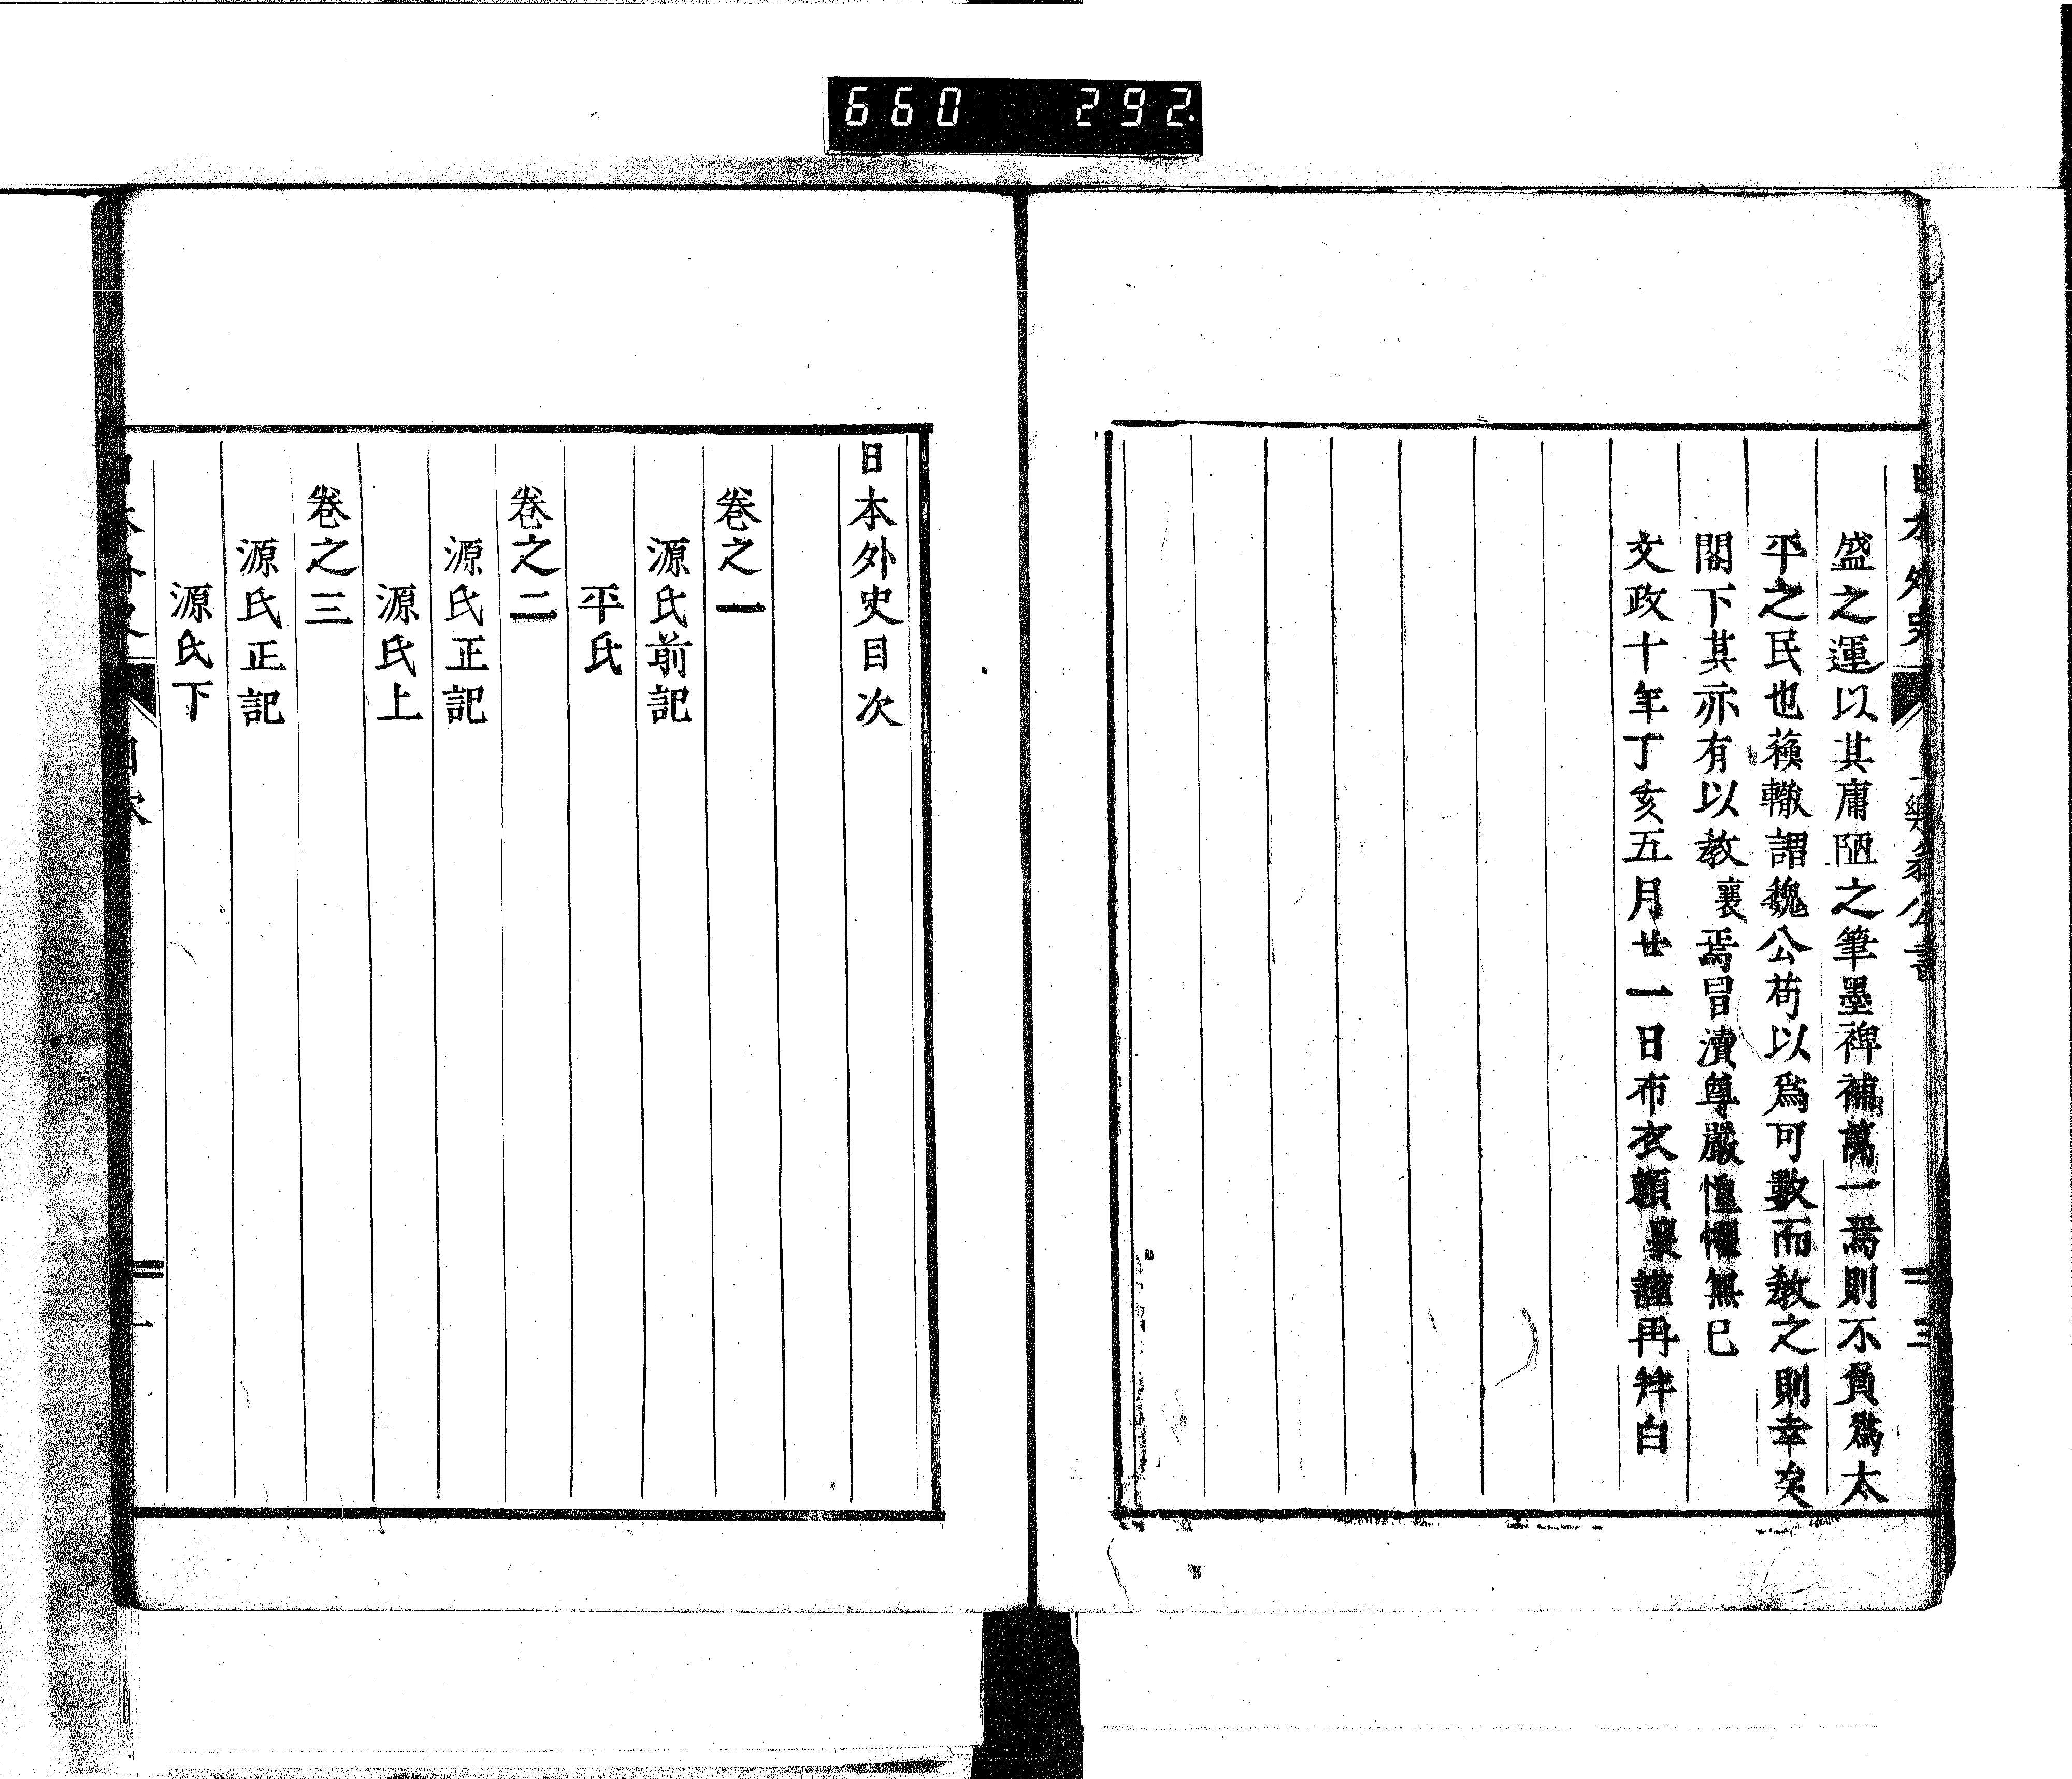 660 292
日本外史 上樂翁公書 三
盛之運以其庸陋之筆墨裨補萬一焉則不負爲太
平之民也蘓轍謂魏公苟以爲可敎而敎之則幸矣
閤下其亦有以敎襄焉冒瀆尊嚴惶懼無已
文政十年丁亥五月廿一日布衣頼襄謹再拜白
日本外史目次
卷之一
源氏前記
平氏
卷之二
源氏正記
源氏上
卷之三
源氏正記
源氏下
日本外史 目次 一